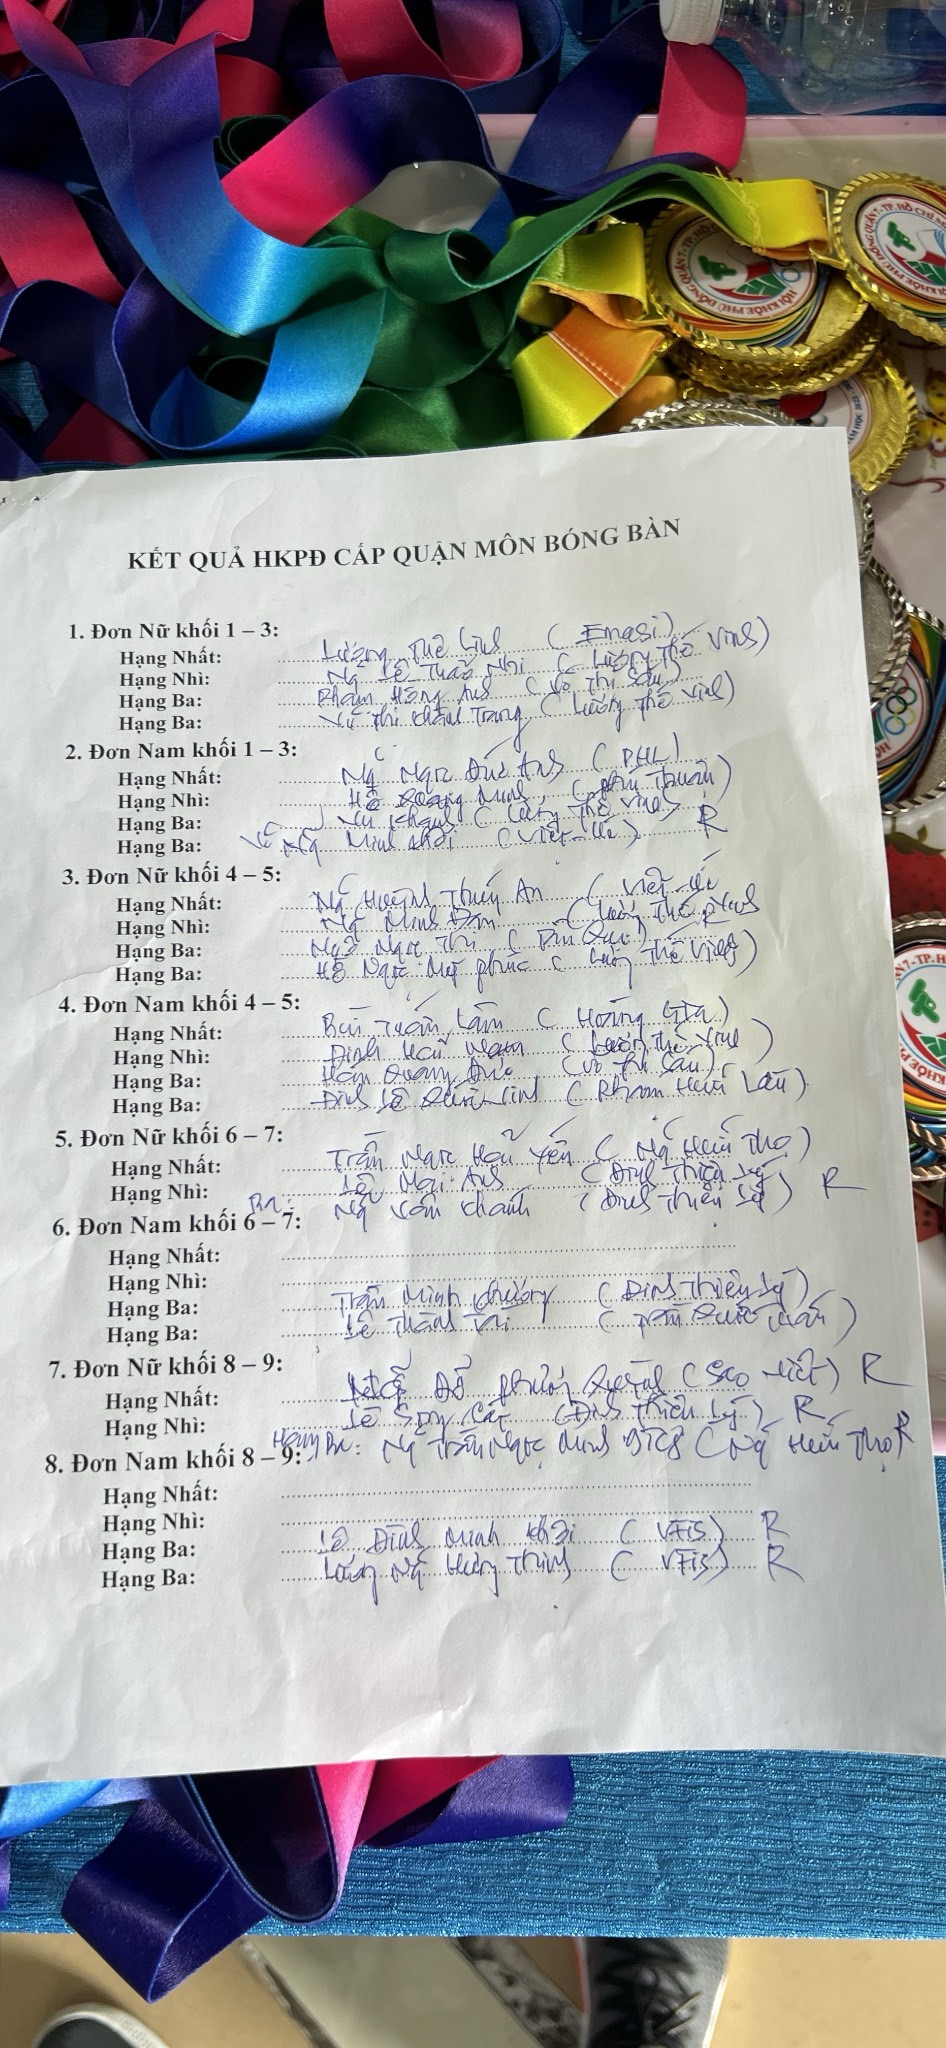 TP.HỒ CHÍ
HỘI KHỎE PHÙ ĐỔNG QUẬN 7 - TP. HỒ CHÍ
KẾT QUẢ HKPĐ CẤP QUẬN MÔN BÓNG BÀN
1. Đơn Nữ khối 1 – 3:
Hạng Nhất: Lương Thế (Emasi)
Hạng Nhì: Ng Lê Thảo Nhi (Lương Thế Vinh)
Hạng Ba: Phạm Hồng Anh (Võ Thị Sáu)
Hạng Ba: Vũ Thị Khánh Trang (Lương Thế Vinh)
2. Đơn Nam khối 1 – 3:
Hạng Nhất: Ng Ngọc Đức Anh (PHL)
Hạng Nhì: Hồ Minh (Phú Thuận)
Hạng Ba: Vũ Khánh (Lương Thế Vinh)
Hạng Ba: Ng Minh Khôi (Việt-Úc) R
3. Đơn Nữ khối 4 – 5:
Hạng Nhất: Ng Huỳnh Thúy An (Việt-Úc
Hạng Nhì: Ng Minh Đan (Lương Thế Vinh
Hạng Ba: Ngô Ngọc Thi ( R
Hạng Ba: Hồ Ngọc Mỹ Phúc (Lương Thế Vinh)
4. Đơn Nam khối 4 – 5:
Hạng Nhất: Bùi Tuấn Lâm (Hoàng Gia)
Hạng Nhì: Đinh Hải Nam (Lương Thế Vinh)
Hạng Ba: Quang Đức (Võ Thị Sáu)
Hạng Ba: Đinh Lê (Phạm Hữu Lầu)
5. Đơn Nữ khối 6 – 7:
Hạng Nhất: Trần Ngọc Hải Yến (Ng Hữu Thọ)
Hạng Nhì: Lê Mai Anh (Đinh Thiện Lý R
Ba: Ng Vân Khánh (Đinh Thiện Lý)
6. Đơn Nam khối 6 – 7:
Hạng Nhất:
Hạng Nhì:
Hạng Ba: Trần Minh Phương (Đinh Thiện Lý)
Hạng Ba: Lê Thành Trí (Trần Quốc Tuấn)
7. Đơn Nữ khối 8 – 9:
Hạng Nhất: Đỗ Phương Quỳnh (Sao Việt) R
Hạng Nhì: Lê Cát (Đinh Thiện Lý) R
Hạng Ba: Ng Trần Ngọc Minh (Ng Hữu Thọ R
8. Đơn Nam khối 8 – 9:
Hạng Nhất:
Hạng Nhì:
Hạng Ba: Lê Đình Minh Khôi (VFIS) R
Hạng Ba: Ng Hưng Thịnh (VFIS) R